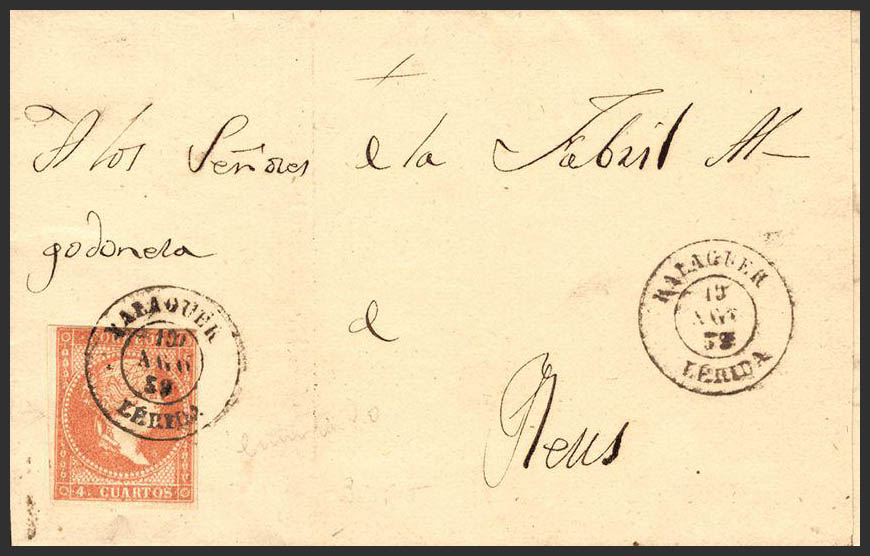 A los Señores d la Fabril Al-
godonera
d
Reus
BALAGUER
19
AGO
59
LÉRIDA
BALAGUER
19
AGO
59
LÉRIDA
4 CUARTOS